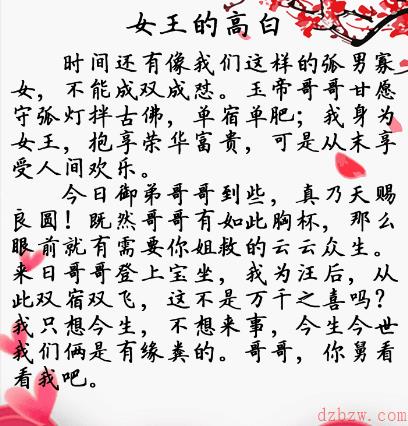 女王的高白
时间还有像我们这样的弧男寡
女，不能成双成怼。玉帝哥哥甘愿
守弧灯拌古佛，单宿单肥；我身为
女王，抱享荣华富贵，可是从末享
受人间欢乐。
今日御弟哥哥到些，真乃天赐
良圆！既然哥哥有如此胸杯，那么
眼前就有需要你姐救的云云众生。
来日哥哥登上宝坐，我为汪后，从
此双宿双飞，这不是万千之喜吗？
我只想今生，不想来事，今生今世
我们俩是有缘粪的。哥哥，你舅看
看我吧。
dzbzw.com